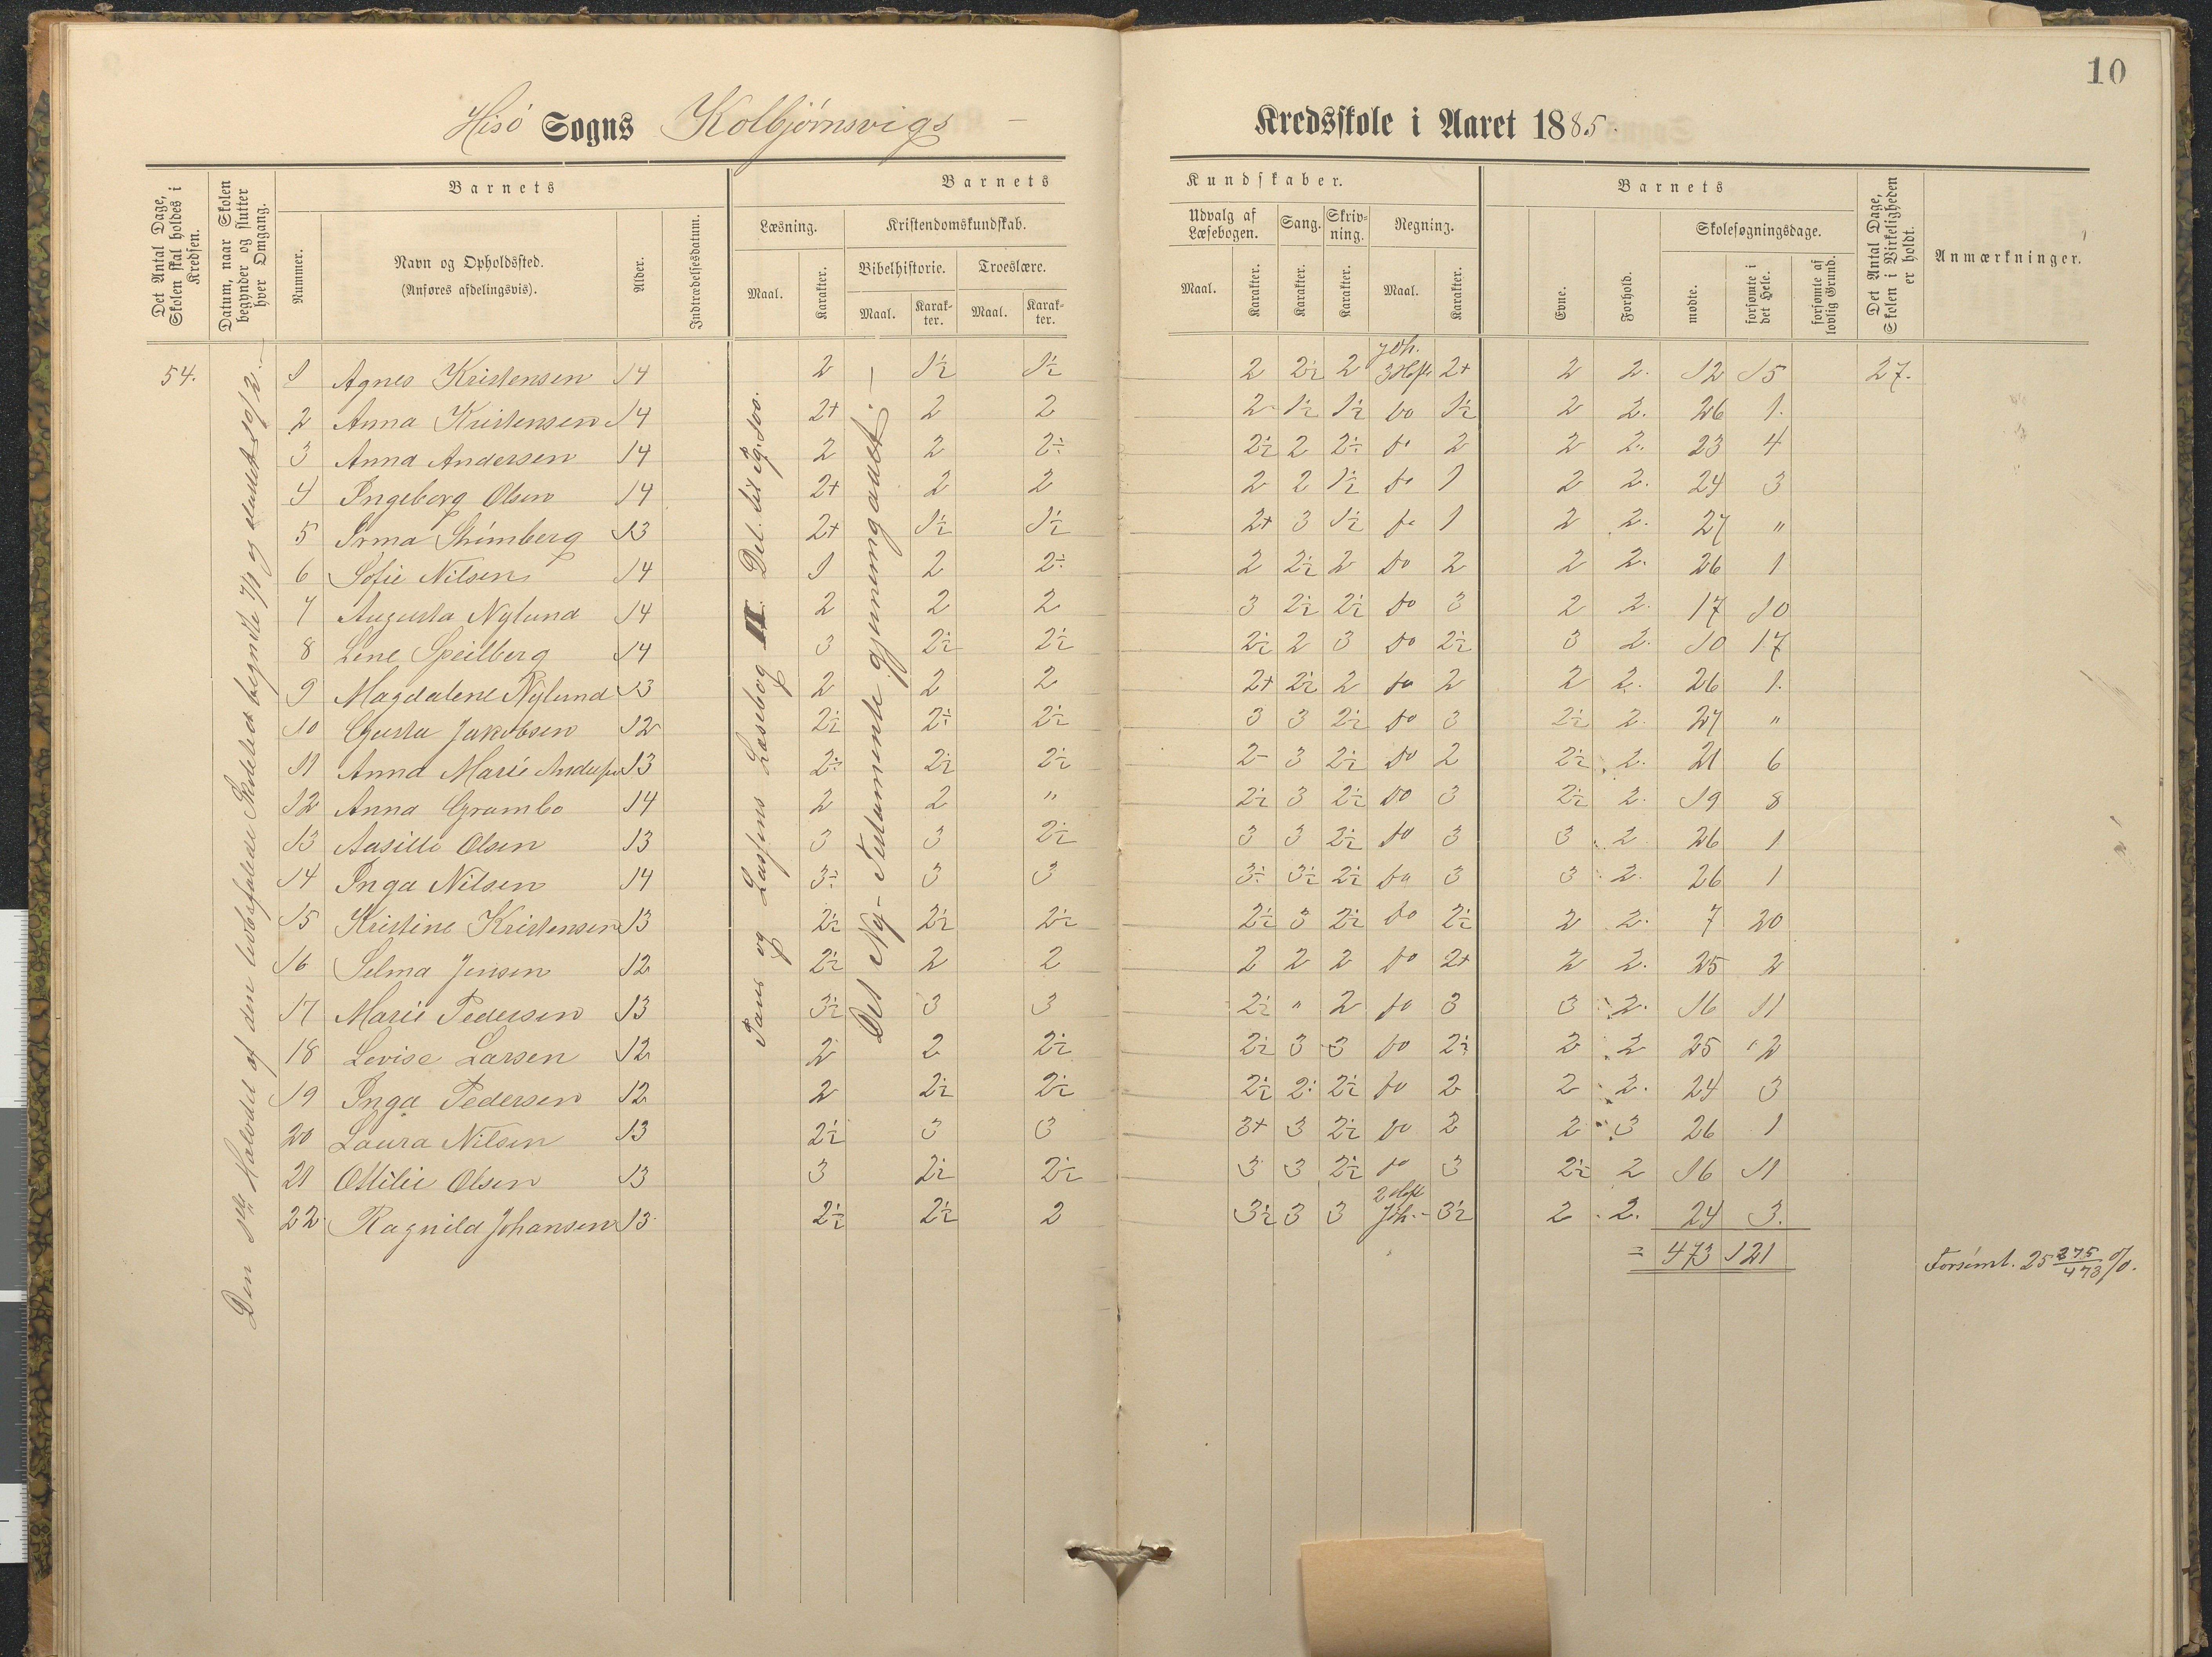 10
Hisö Sogns Kolbjørnsvigs – Kredsskole i Aaret 1885.
Det Antal Dage, Skolen skal holdes i Kredsen.
Datum, naar Skolen begynder og slutter hver Omgang.
Barnets
Nummer.
Navn og Opholdssted.
(Anføres afdelingsvis).
Alder.
Indtrædelsesdatum.
Barnets Kundskaber.
Læsning.
Maal.
Karakter.
Kristendomskundskab.
Bibelhistorie.
Maal.
Karakter.
Troeslære.
Maal.
Karakter.
Udvalg af Læsebogen.
Maal.
Karakter.
Sang.
Karakter.
Skrivning.
Karakter.
Regning.
Maal.
Karakter.
Barnets
Evne.
Forhold.
Skolesøgningsdage.
mødte.
forsømte i det Hele.
forsømte af lovlig Grund.
Det Antal Dage, Skolen i Virkeligheden er holdt.
Anmærkninger.
Den 1ste Halvdel af den lovbefalede Skoletid begyndte 7/1 og sluttet 10/2.–
Pauss og Lassens Læsebog II. Del. til Pg. 100.
Det Ny-Testamente gjennemgaaet.–
54. 1 Agnes Kristensen 14 2 1÷ 1÷ 2 2÷ 2 Joh. 3 Hefte 2+ 2 2. 12 15 27.
2 Anna Kristensen 14 2+ 2 2 2- 1÷ 1÷ do 1÷ 2 2. 26 1.
3 Anna Andersen 14 2 2 2÷ 2÷ 2 2÷ do 2 2 2. 23 4
4 Ingeborg Olsen 14 2+ 2 2 2 2 1÷ do 1 2 2. 24 3
5 Irma 13 2+ 1÷ 1÷ 2+ 3 1÷ do 1 2 2. 27 "
6 Sofie Nilsen 14 1 2 2÷ 2 2÷ 2 do 2 2 2. 26 1
7 Augusta Nylund 14 2 2 2 3 2÷ 2÷ do 3 2 2. 17 10
8 Lene Speilberg 14 3 2÷ 2÷ 2÷ 2 3 do 2÷ 3 2. 10 17
9 Magdalene Nylund 13 2 2 2 2+ 2÷ 2 do 2 2 2. 26 1.
10 Gusta Jakobsen 12 2÷ 2÷ 2÷ 3 3 2÷ do 3 2÷ 2. 27 "
11 Anna Marie Andersen 13 2÷ 2÷ 2÷ 2- 3 2÷ do 2 2÷ 2. 21 6
12 Anna Grambo 14 2 2 " 2÷ 3 2÷ do 3 2÷ 2. 19 8
13 Aasille Olsen 13 3 3 2÷ 3 3 2÷ do 3 3 2 26 1
14 Inga Nilsen 14 3÷ 3 3 3÷ 3÷ 2÷ do 3 3 2. 26 1
15 Kristine Kristensen 13 2÷ 2÷ 2÷ 2÷ 3 2÷ do 2÷ 2 2. 7 20
16 Selma Jensen 12 2÷ 2 2 2 2 2 do 2+ 2 2. 25 2
17 Marie Pedersen 13 3÷ 3 3 2÷ " 2 do 3 3 2. 16 11
18 Lovise Larsen 12 2 2 2÷ 2÷ 3 3 do 2÷ 2 2 25 2
19 Inga Pedersen 12 2 2÷ 2÷ 2÷ 2÷ 2÷ do 2 2 2. 24 3
20 Laura Nilsen 13 2÷ 3 3 3+ 3 2÷ do 2 2 3 26 1
21 Ottilie Olsen 13 3 2÷ 2÷ 3 3 2÷ do 3 2÷ 2 16 11
22. Ragnild Johansen 13. 2÷ 2÷ 2 3÷ 3 3 2 Hefte Joh.- 3÷ 2 2. 24 3.
= 473 121
Forsömt. 25 275/473 %.